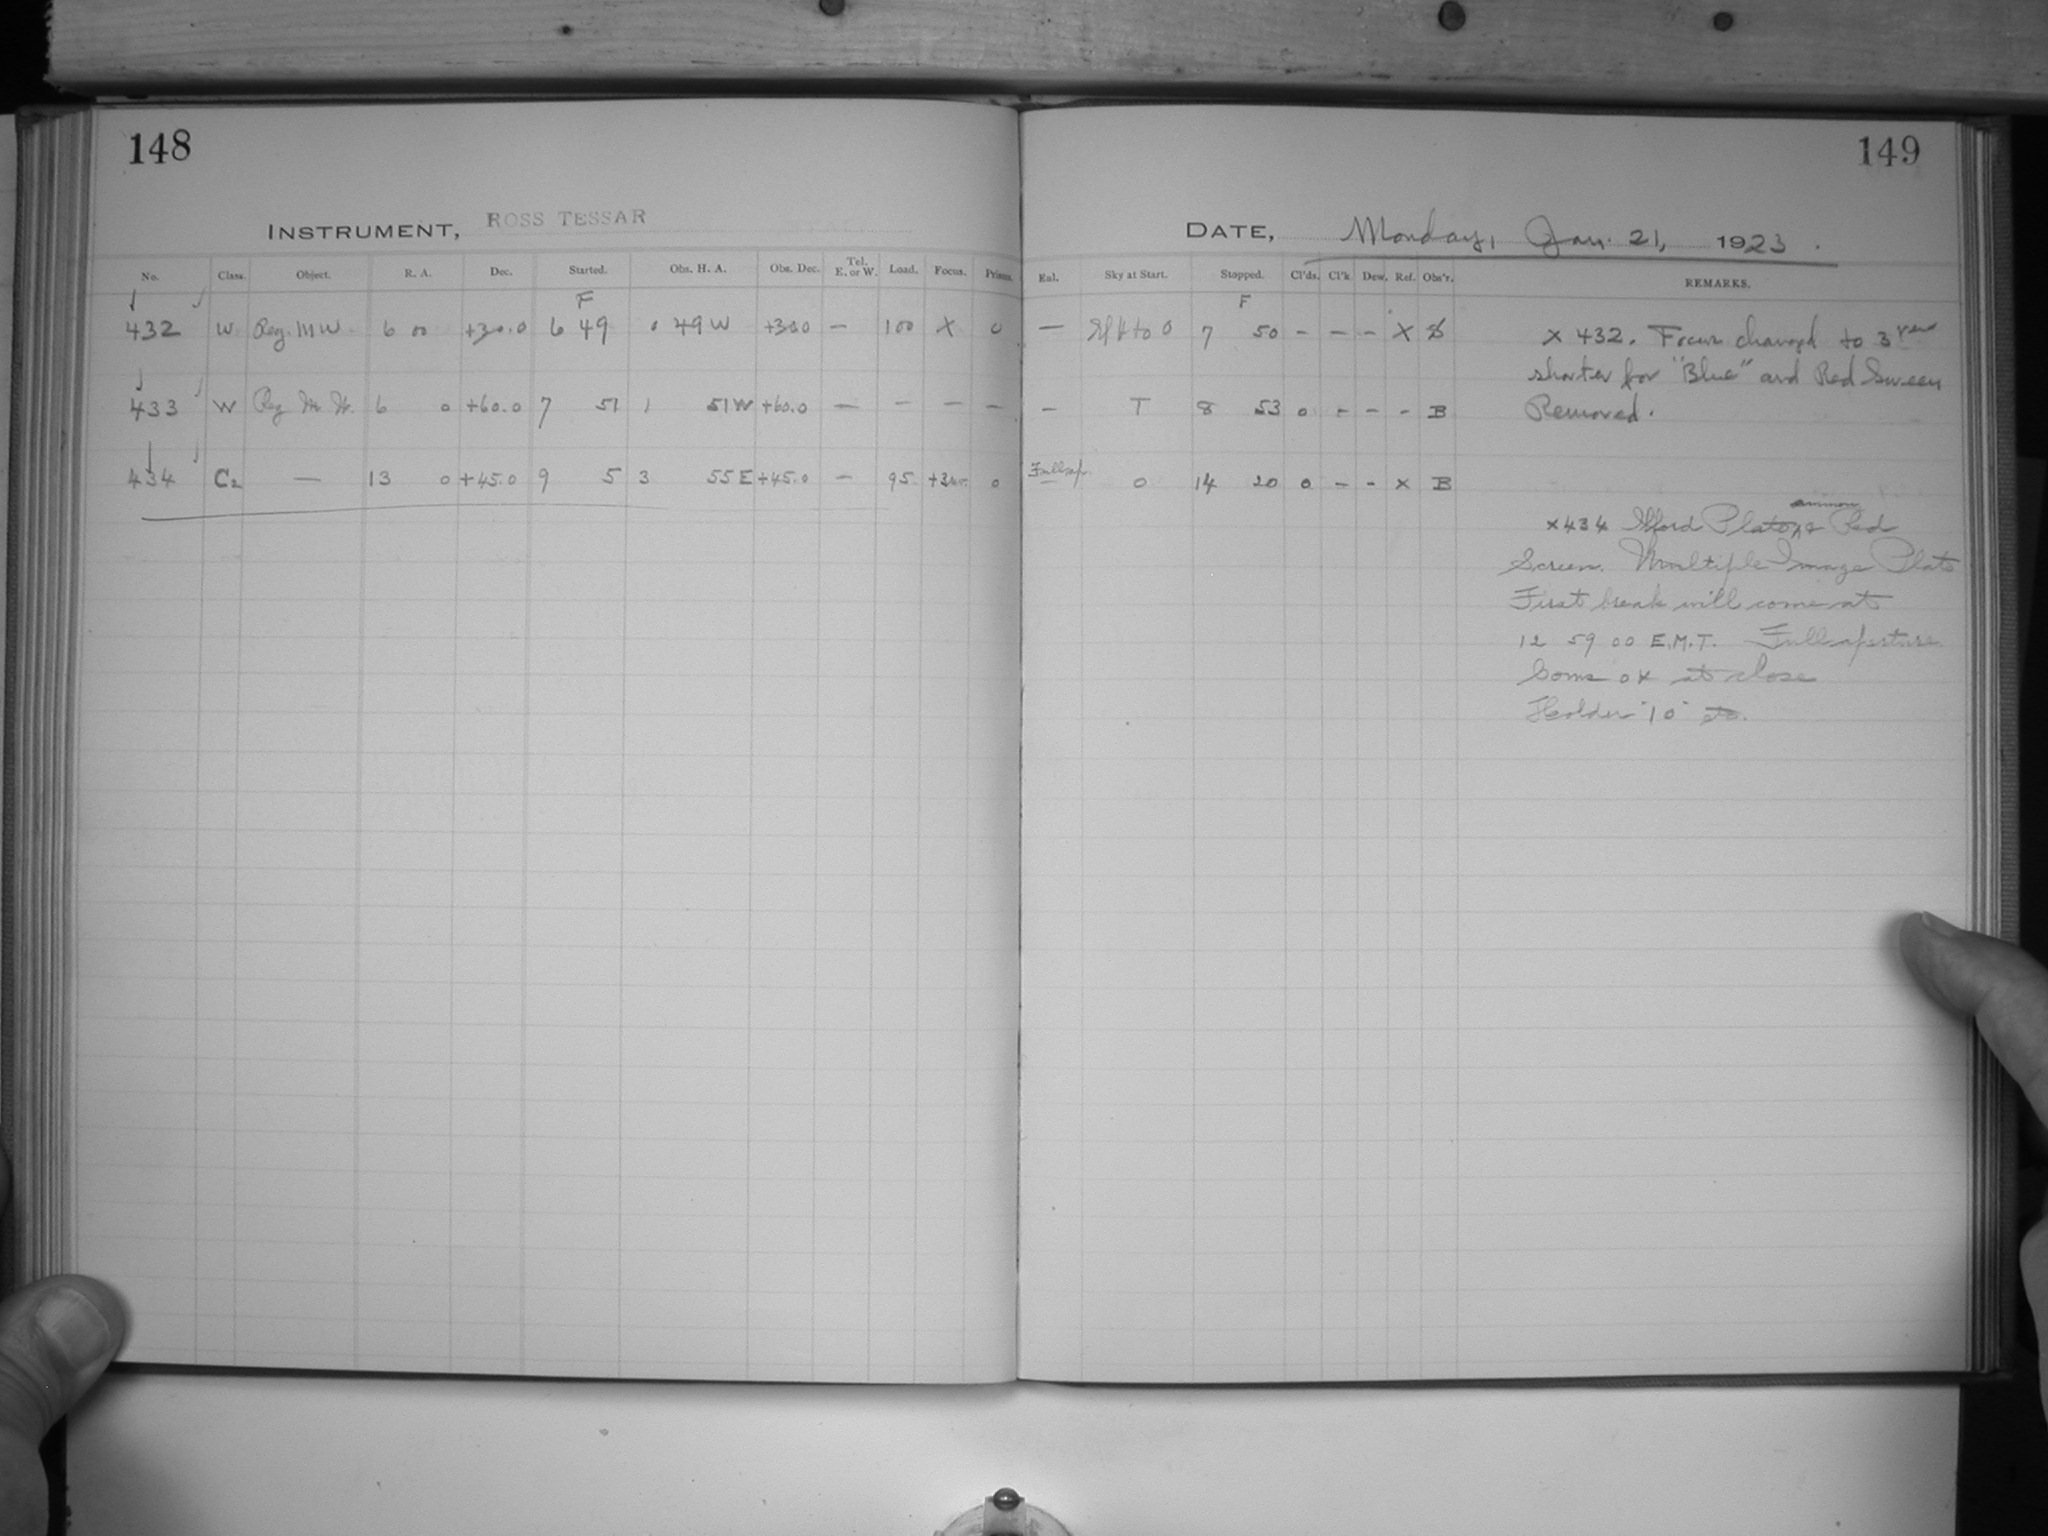 148
149
INSTRUMENT, ROSS TESSAR
DATE, Monday, Jan. 21, 1923.
No. Class. Object. R. A. Dec. Started. Obs. H. A. Obs. Dec. Tel. E. or W. Load. Focus. Prisms.
Enl. Sky at Start. Stopped. Cl'ds. Cl'k Dew. Ref. Obs'r. REMARKS.
F
F
432 W Reg. M W 6 00 +30.0 6 49 0 49 W +30.0 — 100 X 0 — to 0 7 50 - - - X
433 W Reg M. W. 6 0 +60.0 7 51 1 51 W +60.0 — - — — - T 8 53 0 - - - B
434 C2 — 13 0 +45.0 9 5 3 55 E +45.0 — 95 0 Full ap. 0 14 20 0 - - x B
x 432. Focus changed to 3 rev
shorter for "Blue" and Red Screen
Removed.
x 434 Ilford Red
Screen. Multiple Image Plate
First break will come at
12 59 00 E.M.T. Full aperture
Some OK at close
Holder "10"